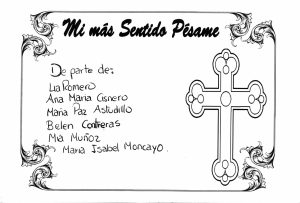 Mi más Sentido Pésame
De parte de:
Lia Romero
Ana Maria Cisnero
Maria Paz Astudillo
Belen Contreras
Mia Muñoz
Maria Isabel Moncayo